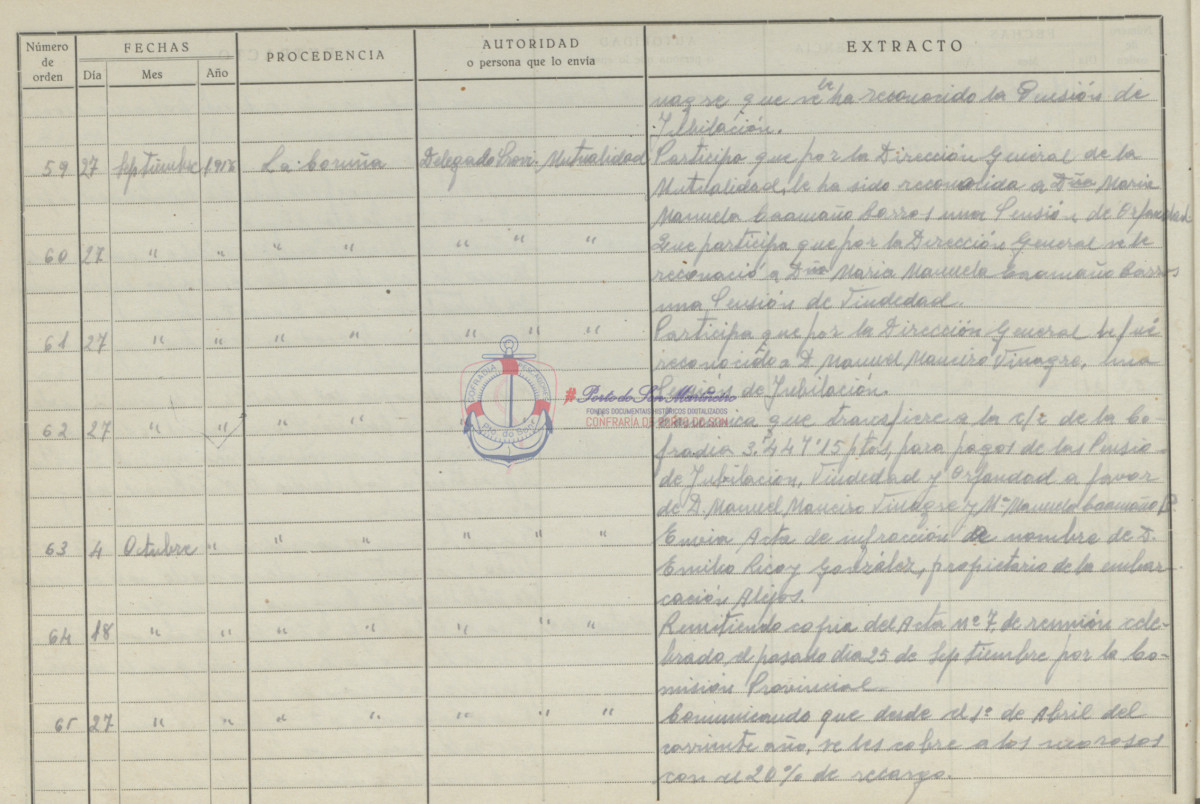 Número de orden FECHAS PROCEDENCIA AUTORIDAD o persona que lo envía EXTRACTO
Día Mes Año
nagre que se le ha reconocido la Pensión de
Jubilación.
59 27 Septiembre La Coruña Delegado Provi. Mutualidad Participa que por la Dirección General de la
Mutualidad, le ha sido reconocida a Dña Maria
Manuela Caamaño Barros una Pensión de Orfandad
60 27 " " " " " " " Que participa que por la Dirección General se le
reconoció a Dña Maria Manuela Caamaño Barros
una Pensión de Viudedad.
61 27 " " " " " " " Participa que por la Dirección General le fué
reconocido a D. Manuel Maneiro Vinagre, una
Pensión de Jubilación.
62 27 " " " " " que transfiere a la c/c de la Co-
fradia 3.447'15 ptas, para pagos de las Pensio-
de Jubilación, Viudedad y Orfandad a favor
de D. Manuel Maneiro Vinagre y Mª Manuela Caamaño B.
63 4 Octubre " " " " " " Envia Acta de infracción a nombre de D.
Emilio Ricoy González, propietario de la embar-
cación Alejos.
64 18 " " " " " " " Remitiendo copia del Acta nº 7, de reunión cele-
brado, el pasado dia 25 de Septiembre por la Co-
misión Provincial.
65 27 " " " " " " " Comunicando que desde el 1º de Abril del
corriente año, se les cobre a los morosos
con el 20% de recargo.
COFRADIA PESCADORES
Pto. do Son
#Porto do Son Mariñeiro
FONDOS DOCUMENTAIS HISTÓRICOS DIXITALIZADOS
CONFRARIA DE PORTO DO SON